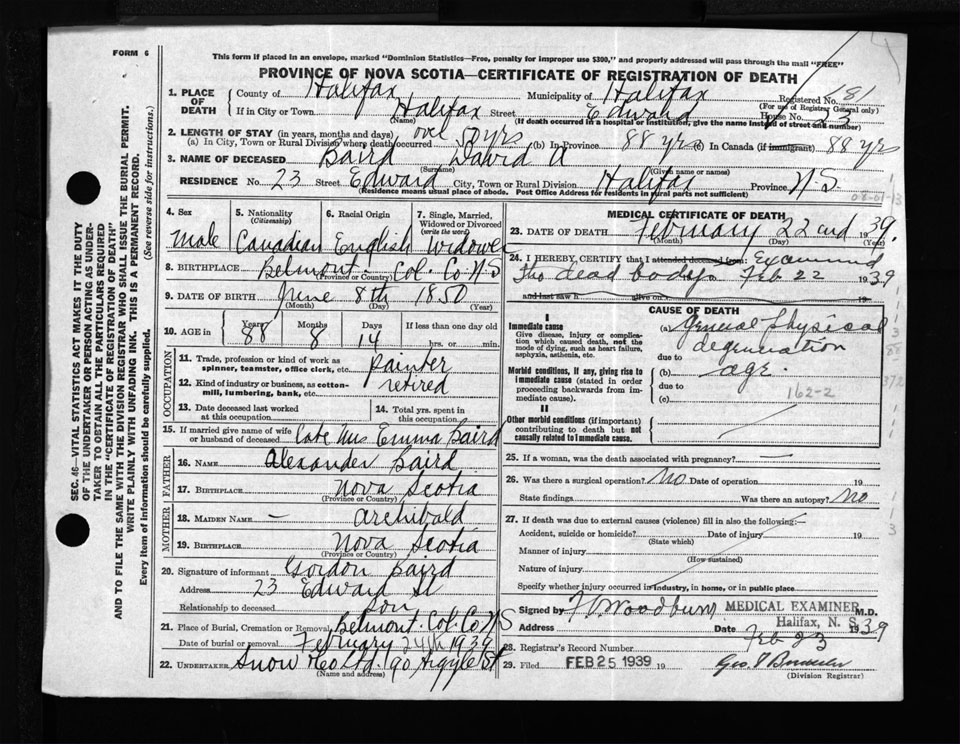 FORM 6
This form if placed in an envelope, marked "Dominion Statistics—Free, penalty for improper use $300," and properly addressed will pass through the mail "FREE"
PROVINCE OF NOVA SCOTIA—CERTIFICATE OF REGISTRATION OF DEATH
SEC. 46—VITAL STATISTICS ACT MAKES IT THE DUTY
OF THE UNDERTAKER OR PERSON ACTING AS UNDER-
TAKER TO OBTAIN ALL THE PARTICULARS REQUIRED
IN THE "CERTIFICATE OF REGISTRATION OF DEATH"
AND TO FILE THE SAME WITH THE DIVISION REGISTRAR WHO SHALL ISSUE THE BURIAL PERMIT.
WRITE PLAINLY WITH UNFADING INK. THIS IS A PERMANENT RECORD.
Every item of information should be carefully supplied. (See reverse side for instructions.)
1. PLACE OF DEATH
County of Halifax Municipality of Halifax Registered No. 481
(For use of Registrar General only)
If in City or Town Halifax Street Edward House No. 23
(Name) (If death occurred in a hospital or institution, give the name instead of street and number)
2. LENGTH OF STAY (in years, months and days)
(a) In City, Town or Rural Division where death occurred over 50 yrs (b) In Province 88 yrs (c) In Canada (if immigrant) 88 yrs
3. NAME OF DECEASED Baird David A
(Surname) (Given name or names)
RESIDENCE No. 23 Street Edward City, Town or Rural Division Halifax Province N.S.
(Residence means usual place of abode. Post Office Address for residents in rural parts not sufficient)
4. Sex 5. Nationality (Citizenship) 6. Racial Origin 7. Single, Married, Widowed or Divorced (write the word)
Male Canadian English Widower
8. BIRTHPLACE Belmont. Col. Co. N.S
(Province or Country)
9. DATE OF BIRTH June 8th 1850
(Month) (Day) (Year)
10. AGE in Years Months Days If less than one day old
88 8 14 hrs. or min.
OCCUPATION
11. Trade, profession or kind of work as spinner, teamster, office clerk, etc. painter
12. Kind of industry or business, as cotton-mill, lumbering, bank, etc. retired
13. Date deceased last worked at this occupation
14. Total yrs. spent in this occupation
15. If married give name of wife or husband of deceased Late Mrs Emma Baird
FATHER
16. NAME Alexander Baird
17. BIRTHPLACE Nova Scotia
(Province or Country)
MOTHER
18. MAIDEN NAME — Archibald
19. BIRTHPLACE Nova Scotia
(Province or Country)
20. Signature of informant Gordon Baird
Address 23 Edward St
Relationship to deceased Son
21. Place of Burial, Cremation or Removal Belmont. Col. Co. N.S
Date of burial or removal February 24th 1939
22. UNDERTAKER Snow &Co Ltd. 90 Argyle St
(Name and address)
MEDICAL CERTIFICATE OF DEATH
23. DATE OF DEATH February 22nd 1939.
(Month) (Day) (Year)
24. I HEREBY CERTIFY that I attended deceased from: Examined
The dead body Feb 22 1939
and last saw h alive on 19
CAUSE OF DEATH
I
Immediate cause
Give disease, injury or complication which caused death, not the mode of dying, such as heart failure, asphyxia, asthenia, etc.
(a) General physical
degeneration
due to
Morbid conditions, if any, giving rise to immediate cause (stated in order proceeding backwards from immediate cause).
(b) age.
due to
162-2
(c)
II
Other morbid conditions (if important) contributing to death but not causally related to immediate cause.
25. If a woman, was the death associated with pregnancy? —
26. Was there a surgical operation? No Date of operation 19
State findings Was there an autopsy? No
27. If death was due to external causes (violence) fill in also the following:—
Accident, suicide or homicide? Date of injury 19
(State which)
Manner of injury
(How sustained)
Nature of injury
Specify whether injury occurred in industry, in home, or in public place
Signed by F. Woodbury MEDICAL EXAMINER M.D.
Halifax, N. S.
Address Date Feb 23 1939
28. Registrar's Record Number
29. Filed FEB 25 1939 19
(Division Registrar)